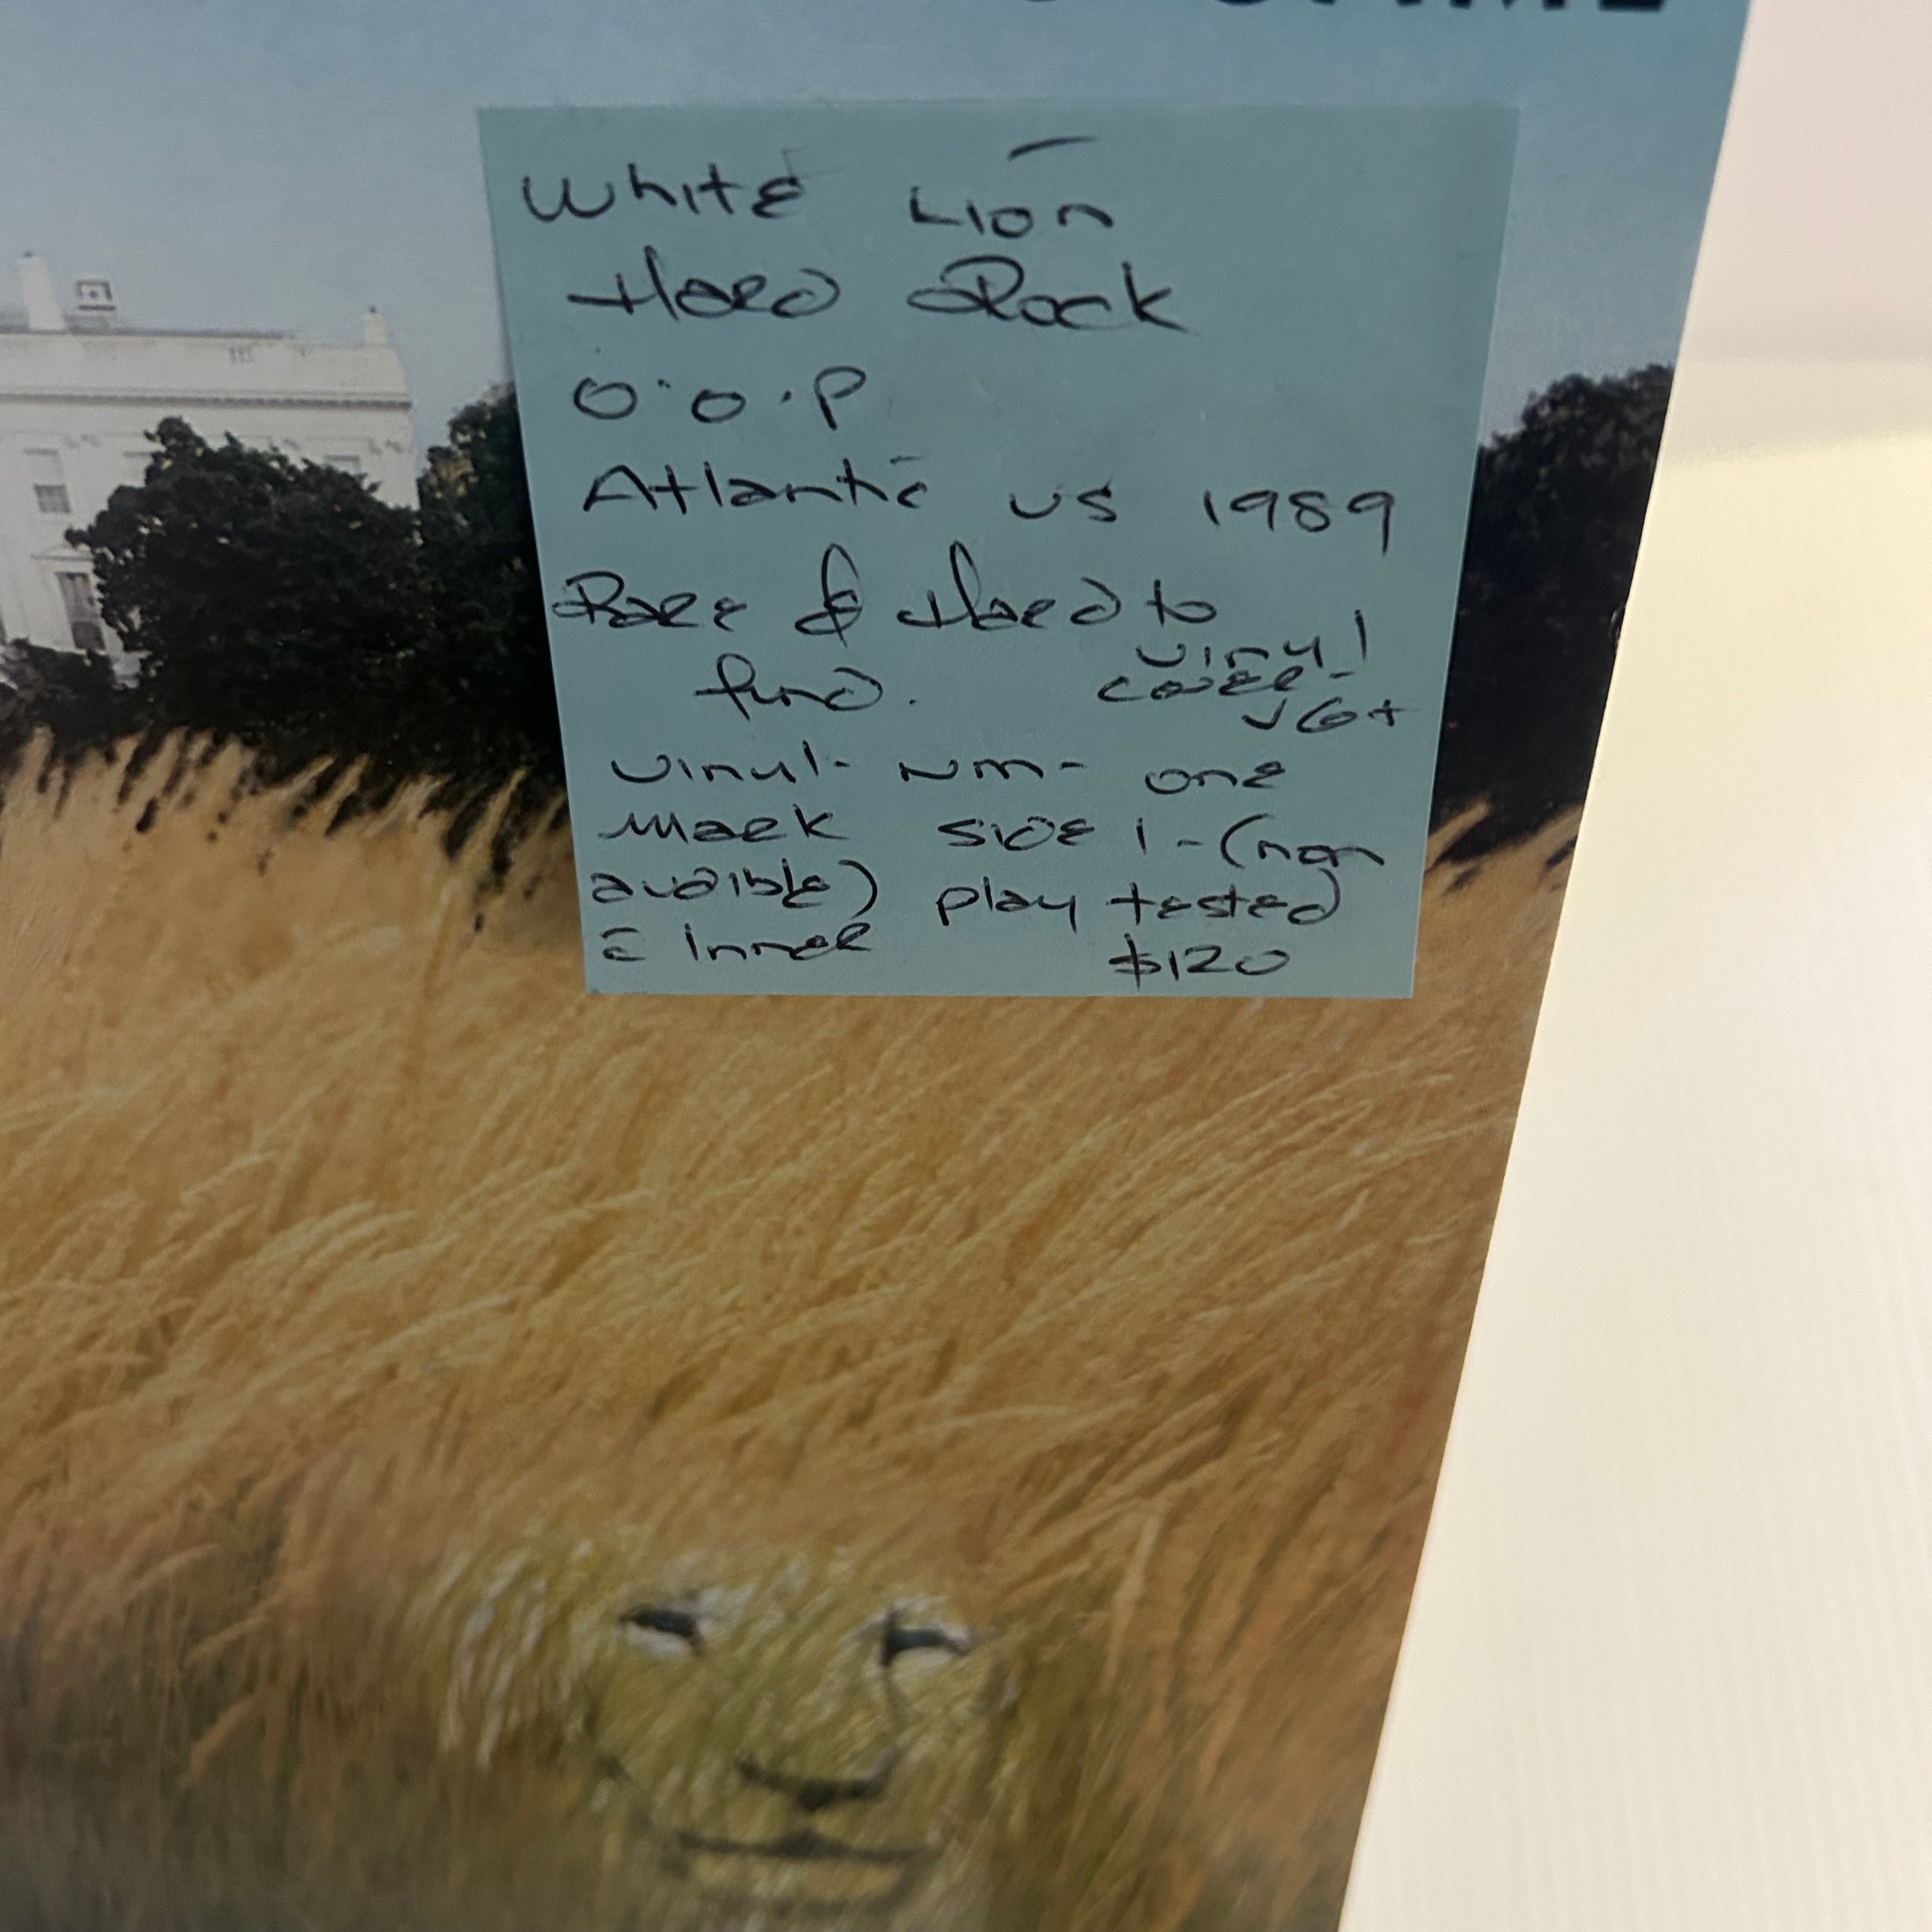 White Lion
Hard Rock
O.O.P
Atlantic US 1989
Rare & Hard to
find.
vinyl
cover-
VG+
Vinyl- NM- one
mark side 1-(non
audible) play tested
c̄ inner $120